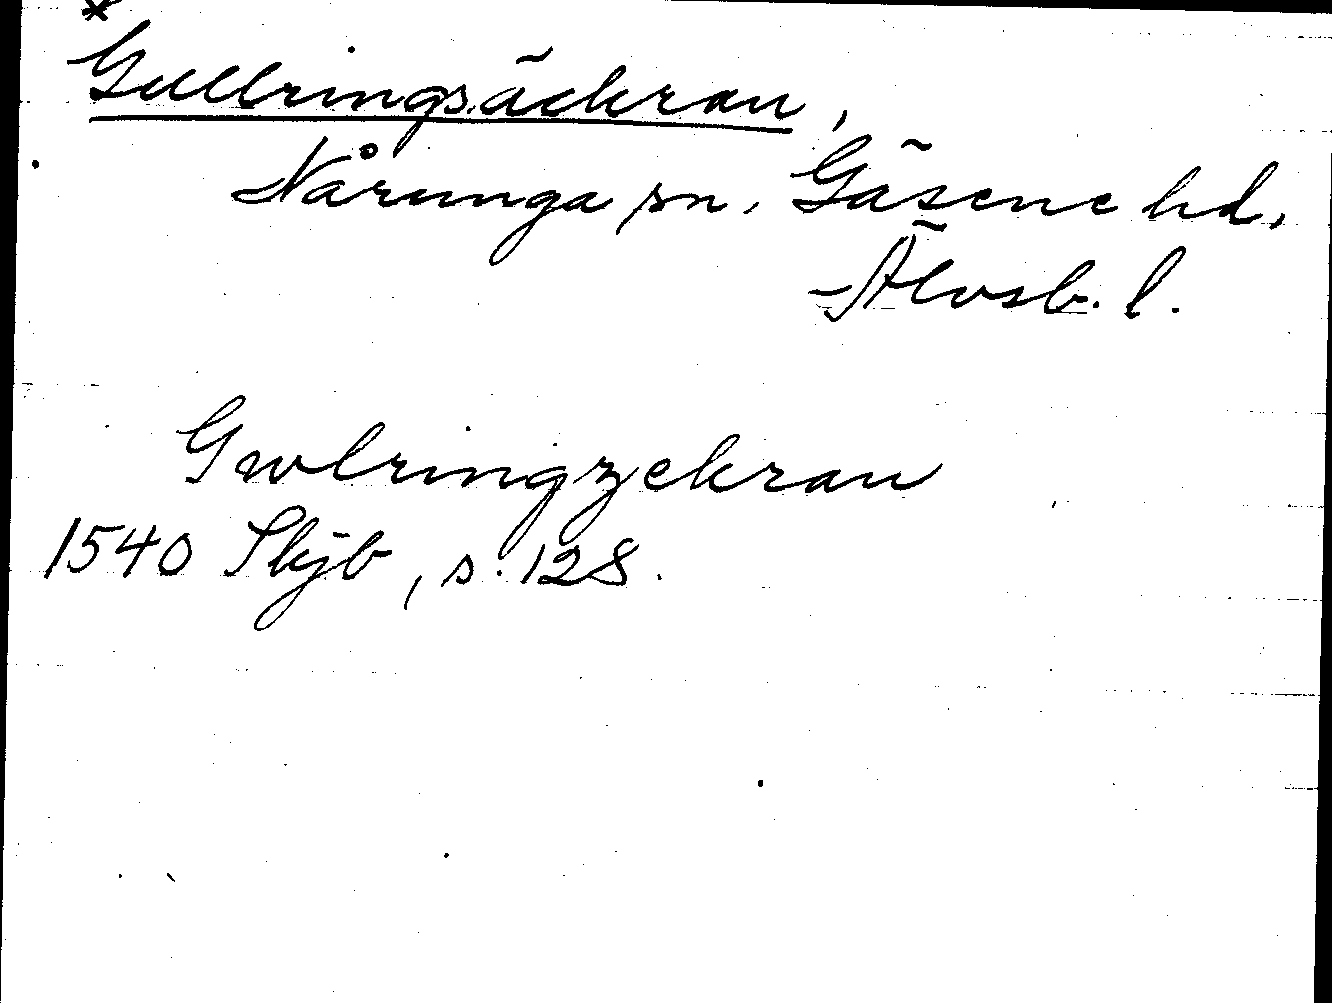 *
Gullringsäckran,
Nårunga sn, Gäsene hd,
Älvsb. l.
Gwlringzekran
1540 Skjb, s. 128.